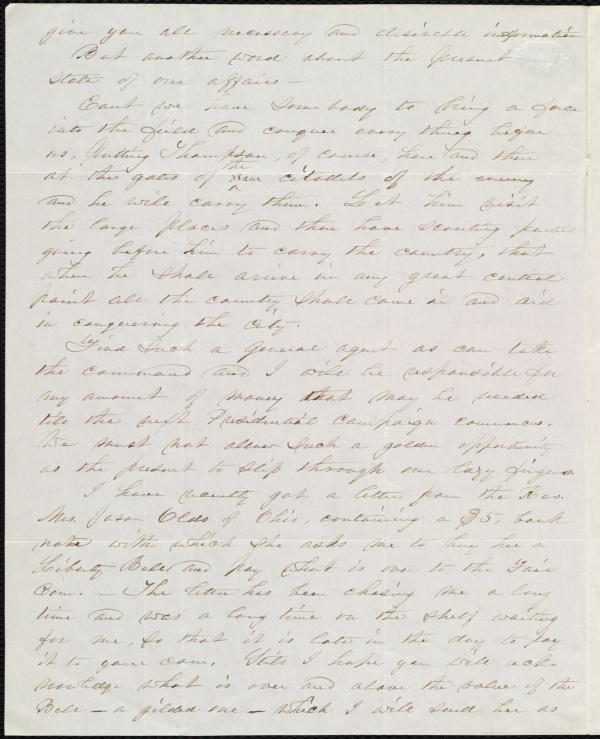 give you all necessary and desirable information
But another word about the present
state of our affairs —
Can't we have somebody to bring a force
into the field and conquer every thing before
us, putting Thompson, of course, here and there
at the gates of the citadels of the enemy
and he will carry them. Let him visit
the large places and then have scouting parties
going before him to carry the country, that
when he shall arrive in any great central
point all the country shall come in and aid
in conquering the city.
Find such a General agent as can take
the command and I will be responsible for
any amount of money that may be needed
till the next Presidential campaign commences.
We must not allow such a golden opportunity
as the present to slip through our lazy fingers.
I have recently got a letter from the Rev.
Mrs. Jason Olds of Ohio, containing a $5, bank
note with which she asks me to buy her a
Liberty Bell and pay what is over to the Fair
Com. — The letter has been chasing me a long
time and was a long time on the shelf waiting
for me, so that it is late in the day to pay
it to your com. Still I hope you will ack-
nowledge what is over and above the value of the
Bell — a gilded one — which I will send her as